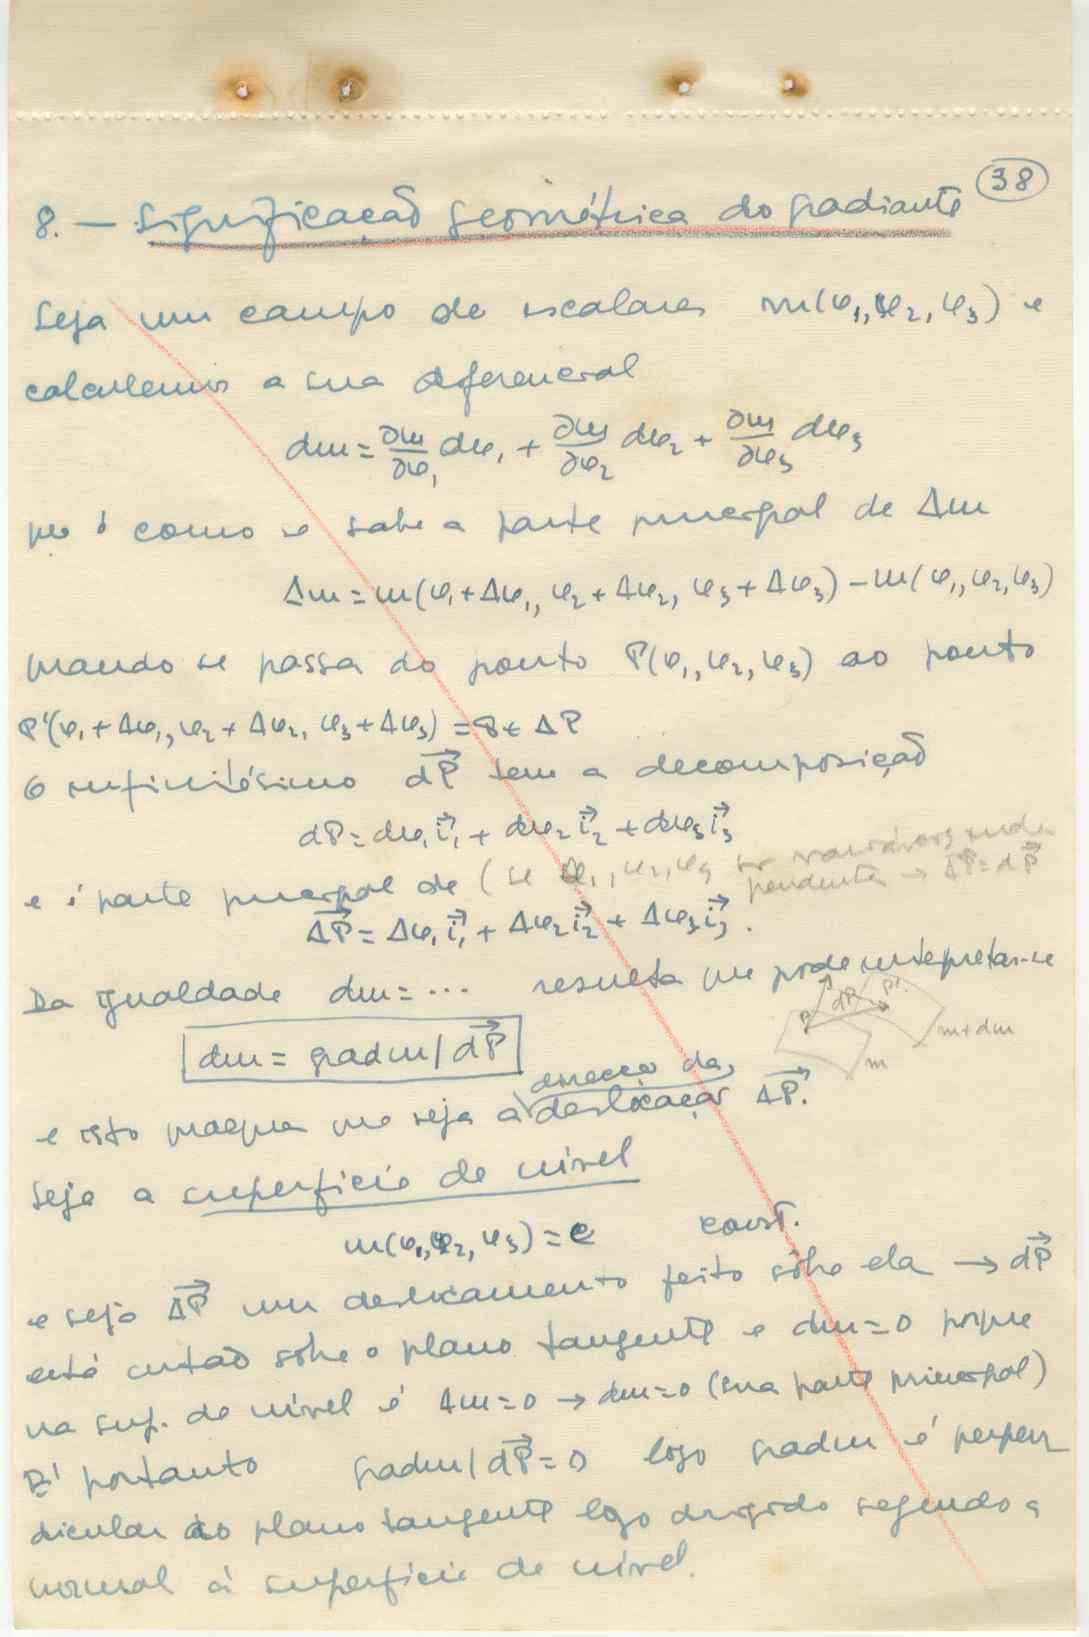 38
8. — Significação geométrica do gradiante
Seja um campo de escalares m(φ₁, φ₂, φ₃) e
calculemos a sua diferencial
dm = ∂m/∂φ₁ dφ₁ + ∂m/∂φ₂ dφ₂ + ∂m/∂φ₃ dφ₃
que é como se sabe a parte principal de Δm
Δm = m(φ₁+Δφ₁, φ₂+Δφ₂, φ₃+Δφ₃) − m(φ₁, φ₂, φ₃)
quando se passa do ponto P(φ₁, φ₂, φ₃) ao ponto
P'(φ₁+Δφ₁, φ₂+Δφ₂, φ₃+Δφ₃) = P + ΔP
O infinitésimo d\vec{P} tem a decomposição
dP = dφ₁ \vec{i}₁ + dφ₂ \vec{i}₂ + dφ₃ \vec{i}₃
e é parte principal de (se φ₁, φ₂, φ₃ variáveis inde
pendentes → \vec{ΔP} = d\vec{P}
\vec{ΔP} = Δφ₁ \vec{i}₁ + Δφ₂ \vec{i}₂ + Δφ₃ \vec{i}₃.
Da igualdade dm = ... resulta que pode interpretar-se
P dP P'
m+dm
m
dm = grad m | d\vec{P}
direcção da
e isto qualquer que seja a deslocação \vec{ΔP}.
Seja a superfície de nível
m(φ₁, φ₂, φ₃) = c const.
e seja \vec{ΔP} um deslocamento feito sôbre ela → d\vec{P}
está então sôbre o plano tangente e dm=0 porque
na sup. de nível é Δm=0 → dm=0 (sua parte principal)
E' portanto grad m | d\vec{P} = 0 logo grad m é perpen
dicular ao plano tangente logo dirigido segundo a
normal à superfície de nível.